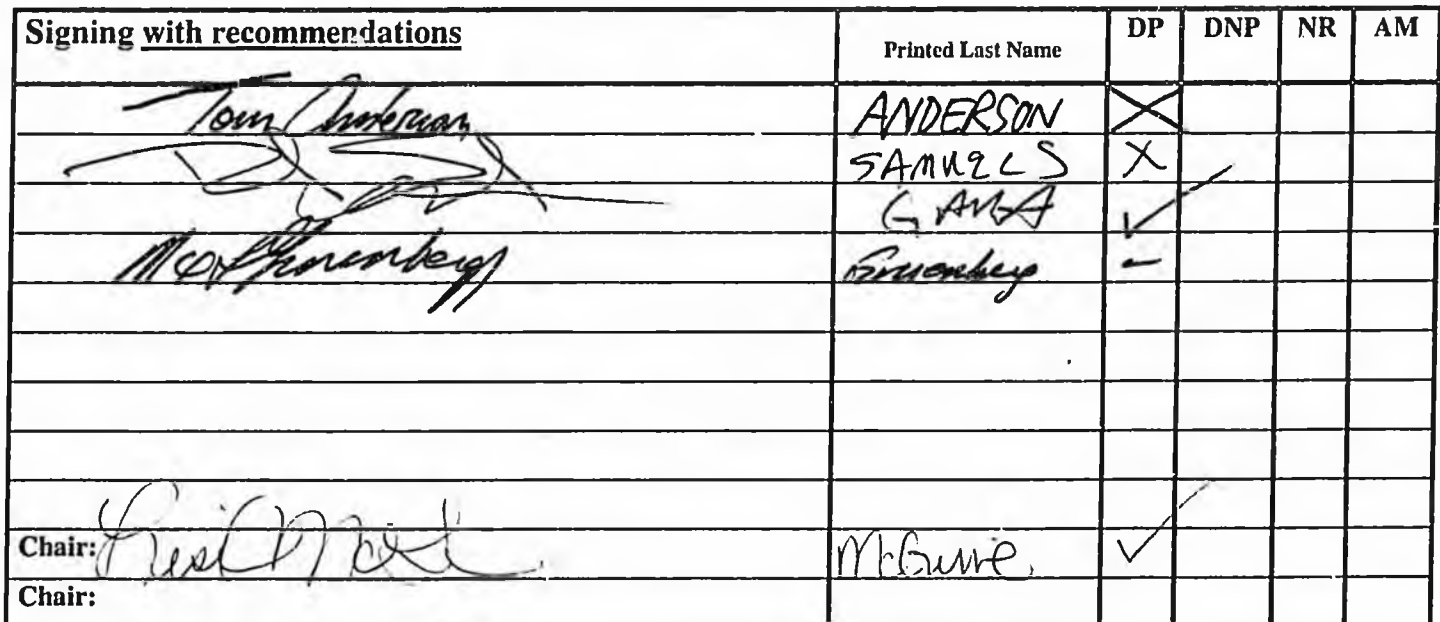 Signing with recommendations Printed Last Name DP DNP NR AM
Tom Anderson ANDERSON X
SAMUELS X
GARA ✓
Max Gruenberg Gruenberg -
Chair: McGuire ✓
Chair: